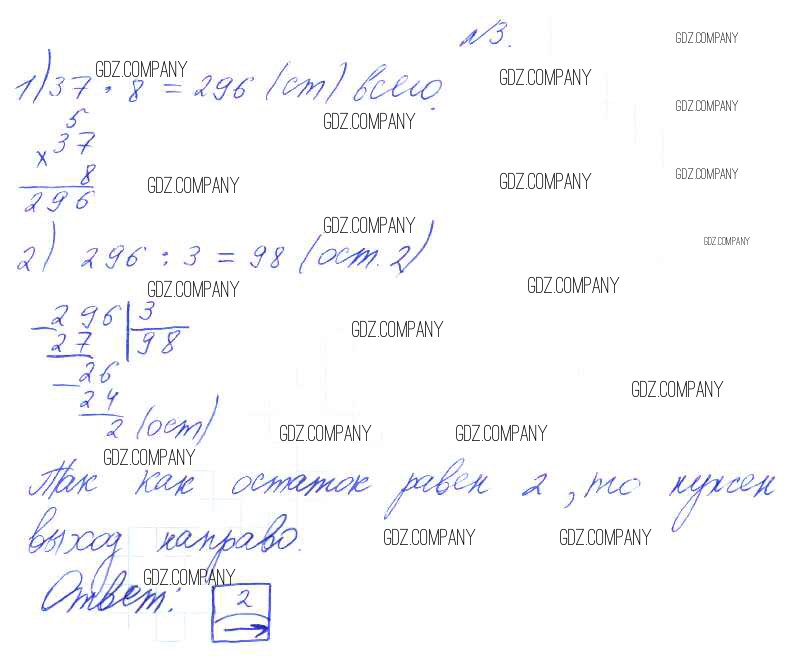 №3.
GDZ.COMPANY
GDZ.COMPANY
1) 37 · 8 = 296 (ст) всего.
GDZ.COMPANY
GDZ.COMPANY
GDZ.COMPANY
5
× 37
8
296
GDZ.COMPANY
GDZ.COMPANY
GDZ.COMPANY
GDZ.COMPANY
GDZ.COMPANY
2) 296 : 3 = 98 (ост. 2)
GDZ.COMPANY
GDZ.COMPANY
– 296 | 3
27 | 98
GDZ.COMPANY
– 26
24
GDZ.COMPANY
2 (ост)
GDZ.COMPANY
GDZ.COMPANY
GDZ.COMPANY
Так как остаток равен 2, то нужен
выход направо.
GDZ.COMPANY
GDZ.COMPANY
GDZ.COMPANY
Ответ: 2 →